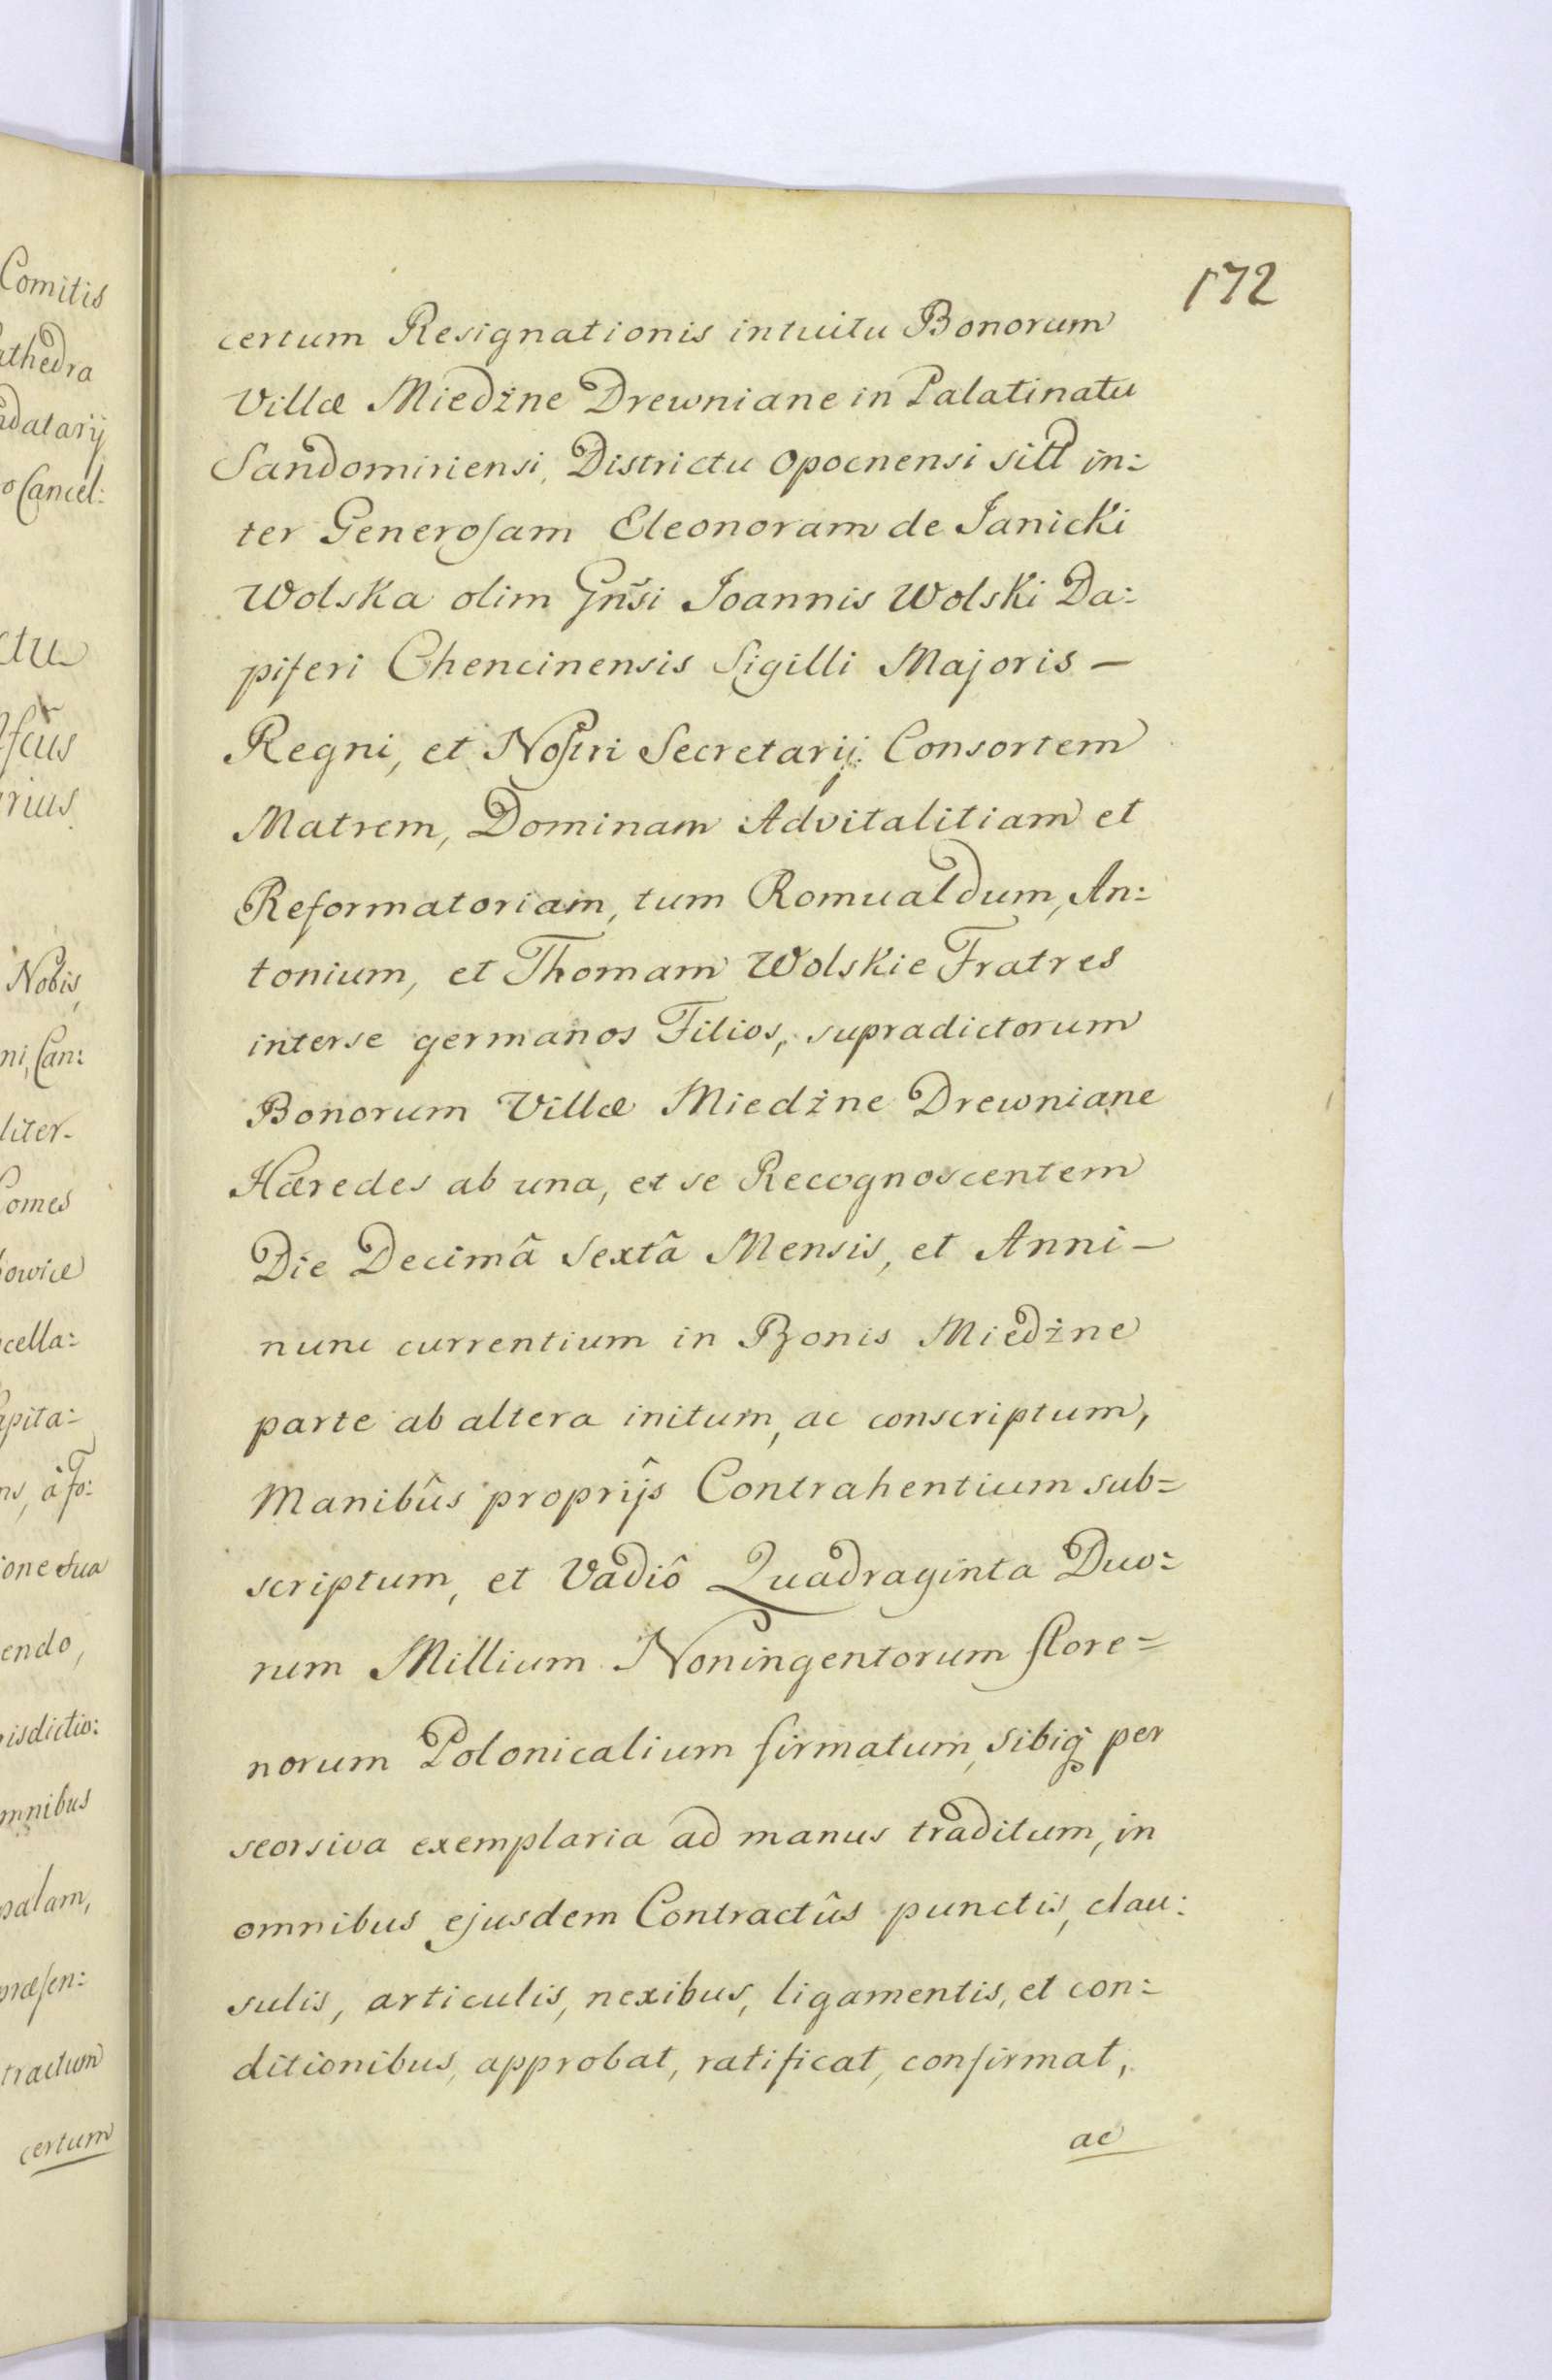 172
certum Resignationis intuitu Bonorum
Villæ Miedżne Drewniane in Palatinatu
Sandomiriensi, Districtu Opocnensi in:
ter Generosam Eleonoram de Janicki
Wolska olim Gñsi Joannis Wolski Da:
piferi Chencinensis Sigilli Majoris –
Regni, et Nostri Secretarij Consortem
Matrem, Dominam Advitalitiam et
Reformatoriam, tum Romualdum, An:
tonium, et Thomam Wolskie Fratres
interse germanos Filios, supradictorum
Bonorum Villæ Miedżne Drewniane
Hæredes ab una, et se Recognoscentem
Die Decimâ Sextâ Mensis, et Anni –
nunc currentium in Bonis Miedżne
parte ab altera initum, ac conscriptum,
Manibûs proprijs Contrahentium sub=
scriptum, et Vadiô Quadraginta Duo:
rum Millium Noningentorum flore=
norum Polonicalium firmatum, sibiq̃ per
seorsiva exemplaria ad manus traditum, in
omnibus ejusdem Contractûs punctis, clau:
sulis, articulis, nexibus, ligamentis, et con:
ditionibus, approbat, ratificat, confirmat,
ac
Comitis
athedra
ndatarij
o Cancel:
ctu
rius
Nobis,
ni, Can:
liter.
Comes
owice
cella:
apita:
ns, à Fo:
ione sua
endo,
isdictio:
mnibus
palam,
præsen:
tractum
certum